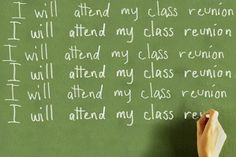 I will attend my class reunion
I will attend my class reunion
I will attend my class reunion
I will attend my class reunion
I will attend my class reunion
I will attend my class reu